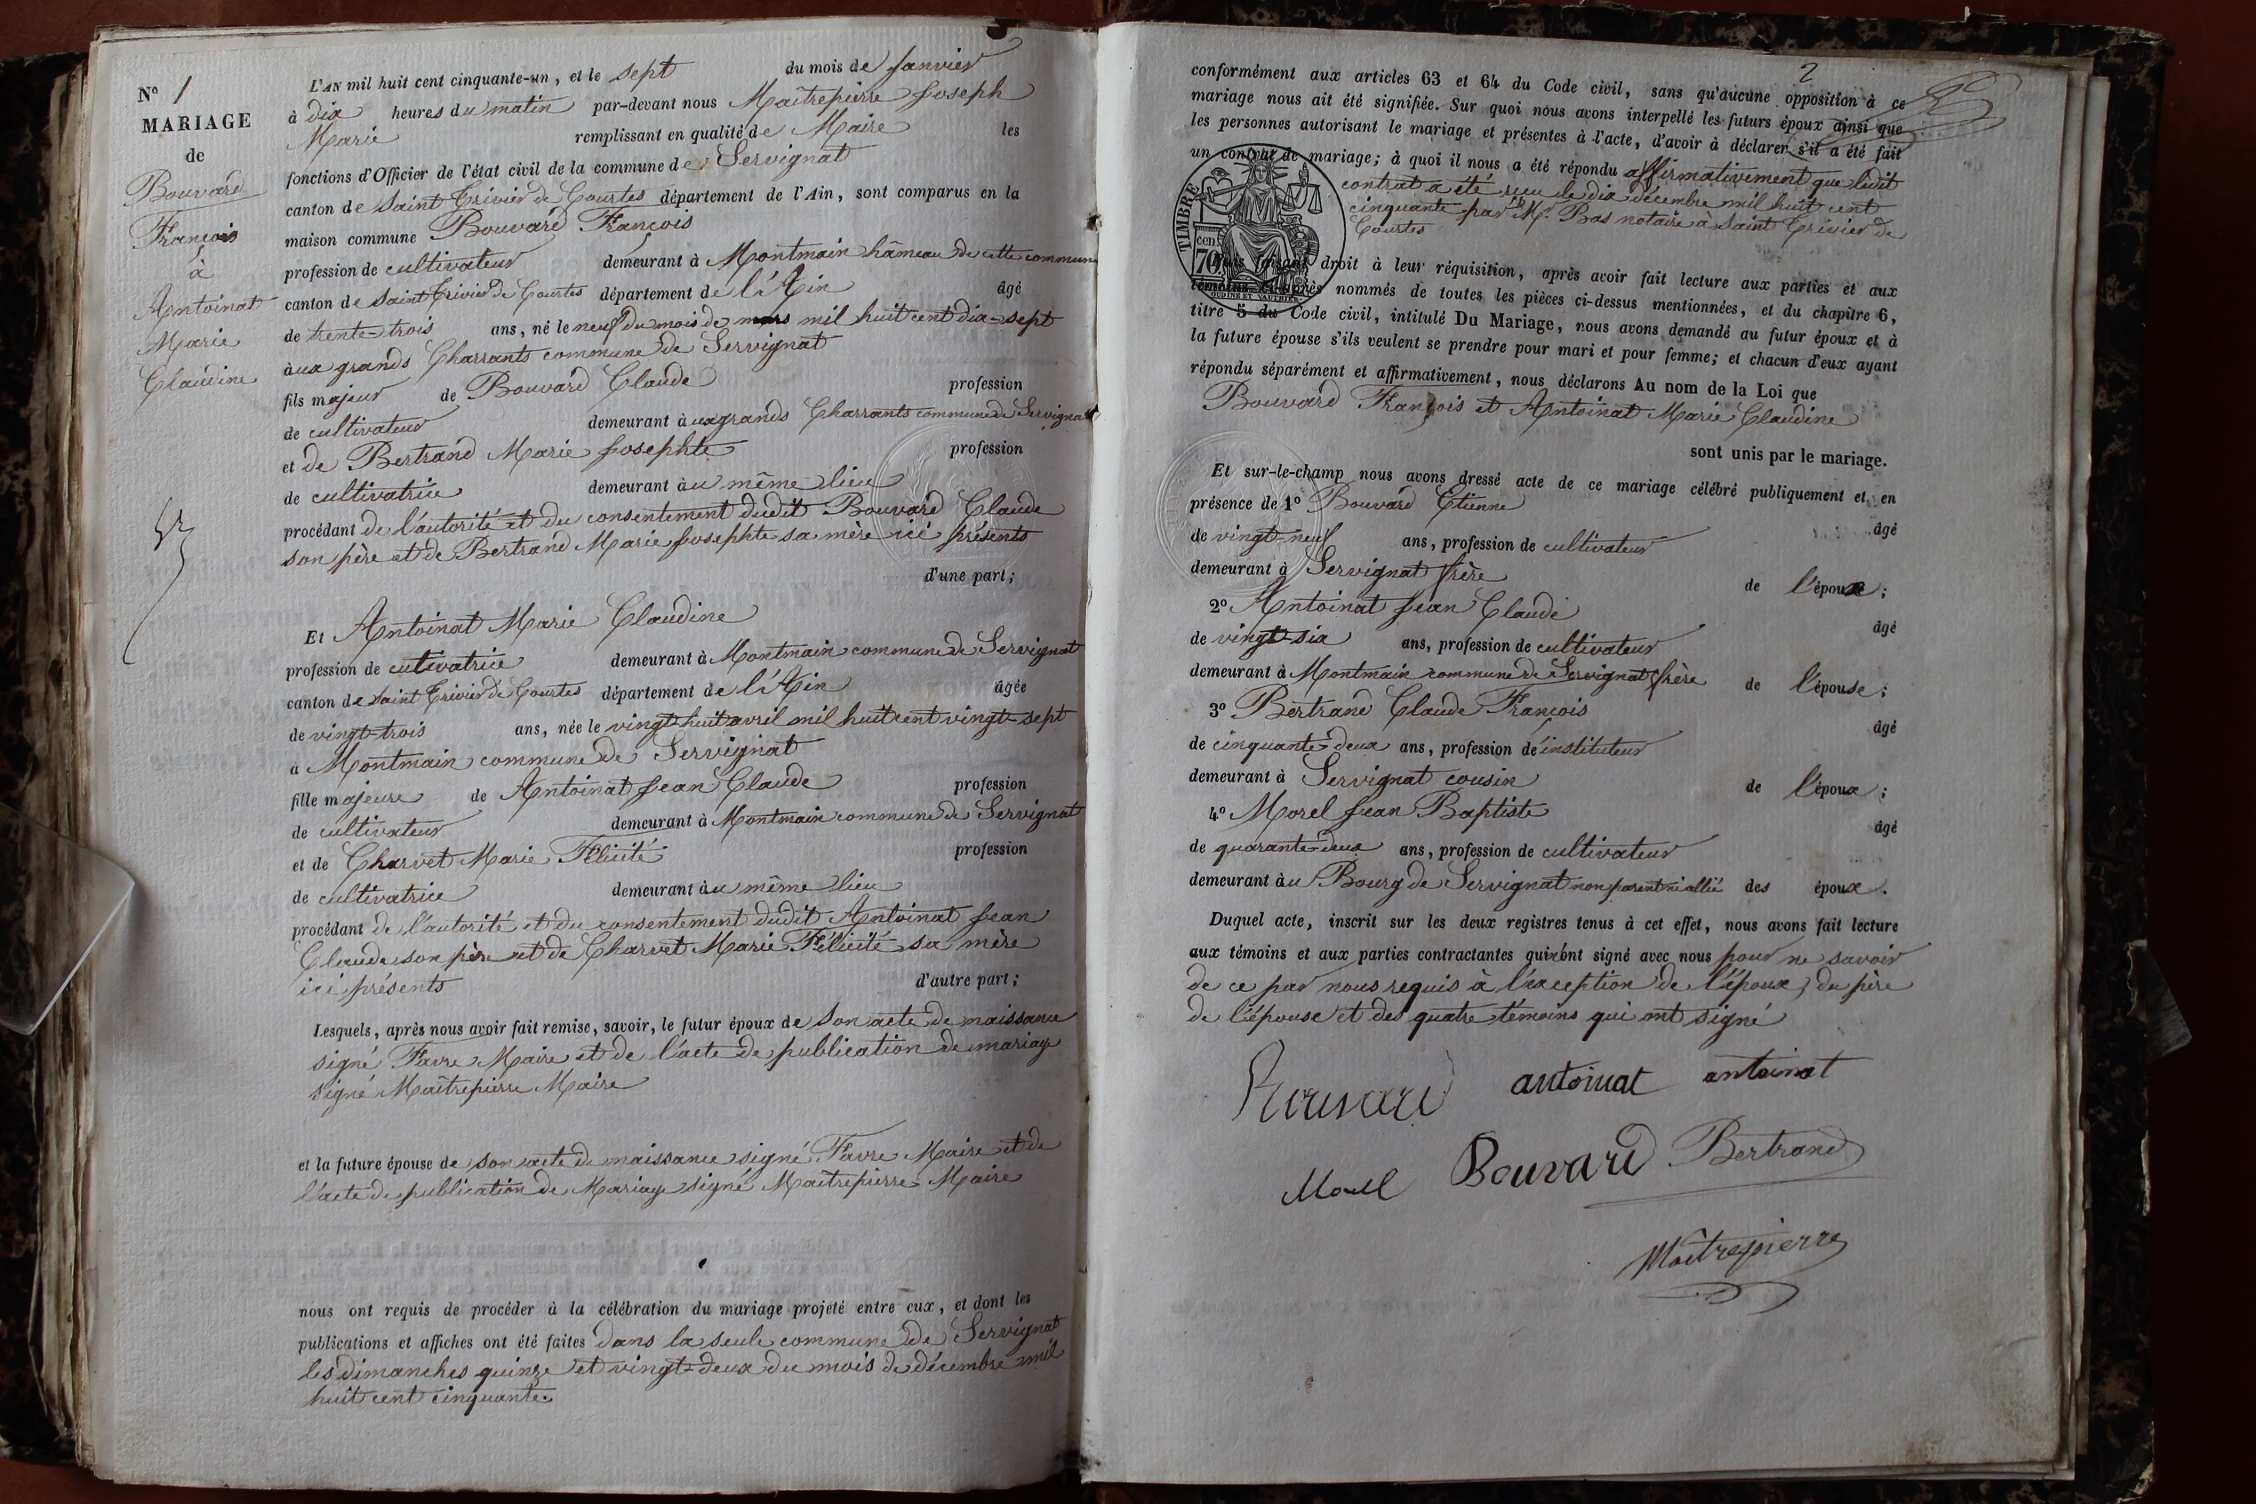 N° 1
MARIAGE
de
Bouvard
François
à
Antoinat
Marie
Claudine
L'AN mil huit cent cinquante-un, et le sept du mois de Janvier
à dix heures du matin par-devant nous Maîtrepierre Joseph
Marie remplissant en qualité de Maire les
fonctions d'Officier de l'état civil de la commune de Servignat
canton de Saint Trivier de Courtes département de l'Ain, sont comparus en la
maison commune Bouvard François
profession de cultivateur demeurant à Montmain hâmeau de cette commune
canton de Saint Trivier de Courtes département de l'Ain âgé
de trente-trois ans, né le neuf du mois de mars mil huit cent dix-sept
à ux grands Charrants commune de Servignat
fils majeur de Bouvard Claude profession
de cultivateur demeurant à ux grands Charrants commune de Servignat
et de Bertrand Marie Josephte profession
de cultivatrice demeurant à u même lieu
procédant de l'autorité et du consentement dudit Bouvard Claude
son père et de Bertrand Marie Josephte sa mère ici présents
d'une part;
Et Antoinat Marie Claudine
profession de cutivatrice demeurant à Montmain commune de Servignat
canton de Saint Trivier de Courtes département de l'Ain âgée
de vingt-trois ans, née le vingt-huit avril mil huit cent vingt-sept
à Montmain commune de Servignat
fille majeure de Antoinat Jean Claude profession
de cultivateur demeurant à Montmain commune de Servignat
et de Charvet Marie Félicité profession
de cultivatrice demeurant à u même lieu
procédant de l'autorité et du consentement dudit Antoinat Jean
Claude son père et de Charvet Marie Félicité sa mère
ici présents d'autre part;
Lesquels, après nous avoir fait remise, savoir, le futur époux de son acte de naissance
signé Favre Maire et de l'acte de publication de mariage
signé Maîtrepierre Maire
et la future épouse de son acte de naissance signé Favre Maire et de
l'acte de publication de Mariage signé Maîtrepierre Maire
nous ont requis de procéder à la célébration du mariage projeté entre eux, et dont les
publications et affiches ont été faites dans la seule commune de Servignat
les dimanches quinze et vingt-deux du mois de décembre mil
huit cent cinquante
2
conformément aux articles 63 et 64 du Code civil, sans qu'aucune opposition à ce
mariage nous ait été signifiée. Sur quoi nous avons interpellé les futurs époux ainsi que
les personnes autorisant le mariage et présentes à l'acte, d'avoir à déclarer s'il a été fait
un contrat de mariage; à quoi il nous a été répondu affirmativement que ledit
contrat a été reçu le dix décembre mil huit cent
cinquante par Me. Bas notaire à Saint Trivier de
Courtes
TIMBRE
cen 70
OUDINÉ ET VAUTHIER
faisant droit à leur réquisition, après avoir fait lecture aux parties et aux
témoins ci-après nommés de toutes les pièces ci-dessus mentionnées, et du chapitre 6,
titre 5 du Code civil, intitulé Du Mariage, nous avons demandé au futur époux et à
la future épouse s'ils veulent se prendre pour mari et pour femme; et chacun d'eux ayant
répondu séparément et affirmativement, nous déclarons Au nom de la Loi que
Bouvard François et Antoinat Marie Claudine
sont unis par le mariage.
Et sur-le-champ nous avons dressé acte de ce mariage célébré publiquement et en
présence de 1° Bouvard Etienne âgé
de vingt-neuf ans, profession de cultivateur
demeurant à Servignat frère de l'époux;
2° Antoinat Jean Claude âgé
de vingt-six ans, profession de cultivateur
demeurant à Montmain commune de Servignat frère de l'épouse;
3° Bertrand Claude François âgé
de cinquante-deux ans, profession de instituteur
demeurant à Servignat cousin de l'époux;
4° Morel Jean Baptiste âgé
de quarante-deux ans, profession de cultivateur
demeurant à u Bourg de Servignat non parent ni allié des époux.
Duquel acte, inscrit sur les deux registres tenus à cet effet, nous avons fait lecture
aux témoins et aux parties contractantes qui n'ont signé avec nous pour ne savoir
de ce par nous requis à l'exception de l'époux, du père
de l'épouse et des quatre témoins qui ont signé
Bouvard antoinat antoinat
Morel Bouvard Bertrand
Maîtrepierre